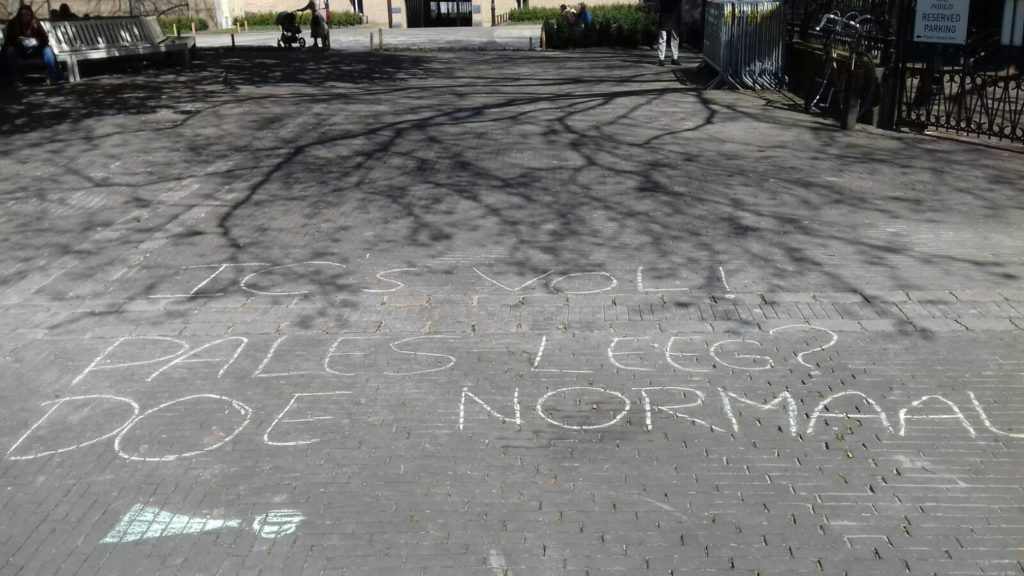 INDIGO
RESERVED
PARKING
IC'S VOL!
PALES LEEG?
DOE NORMAAL